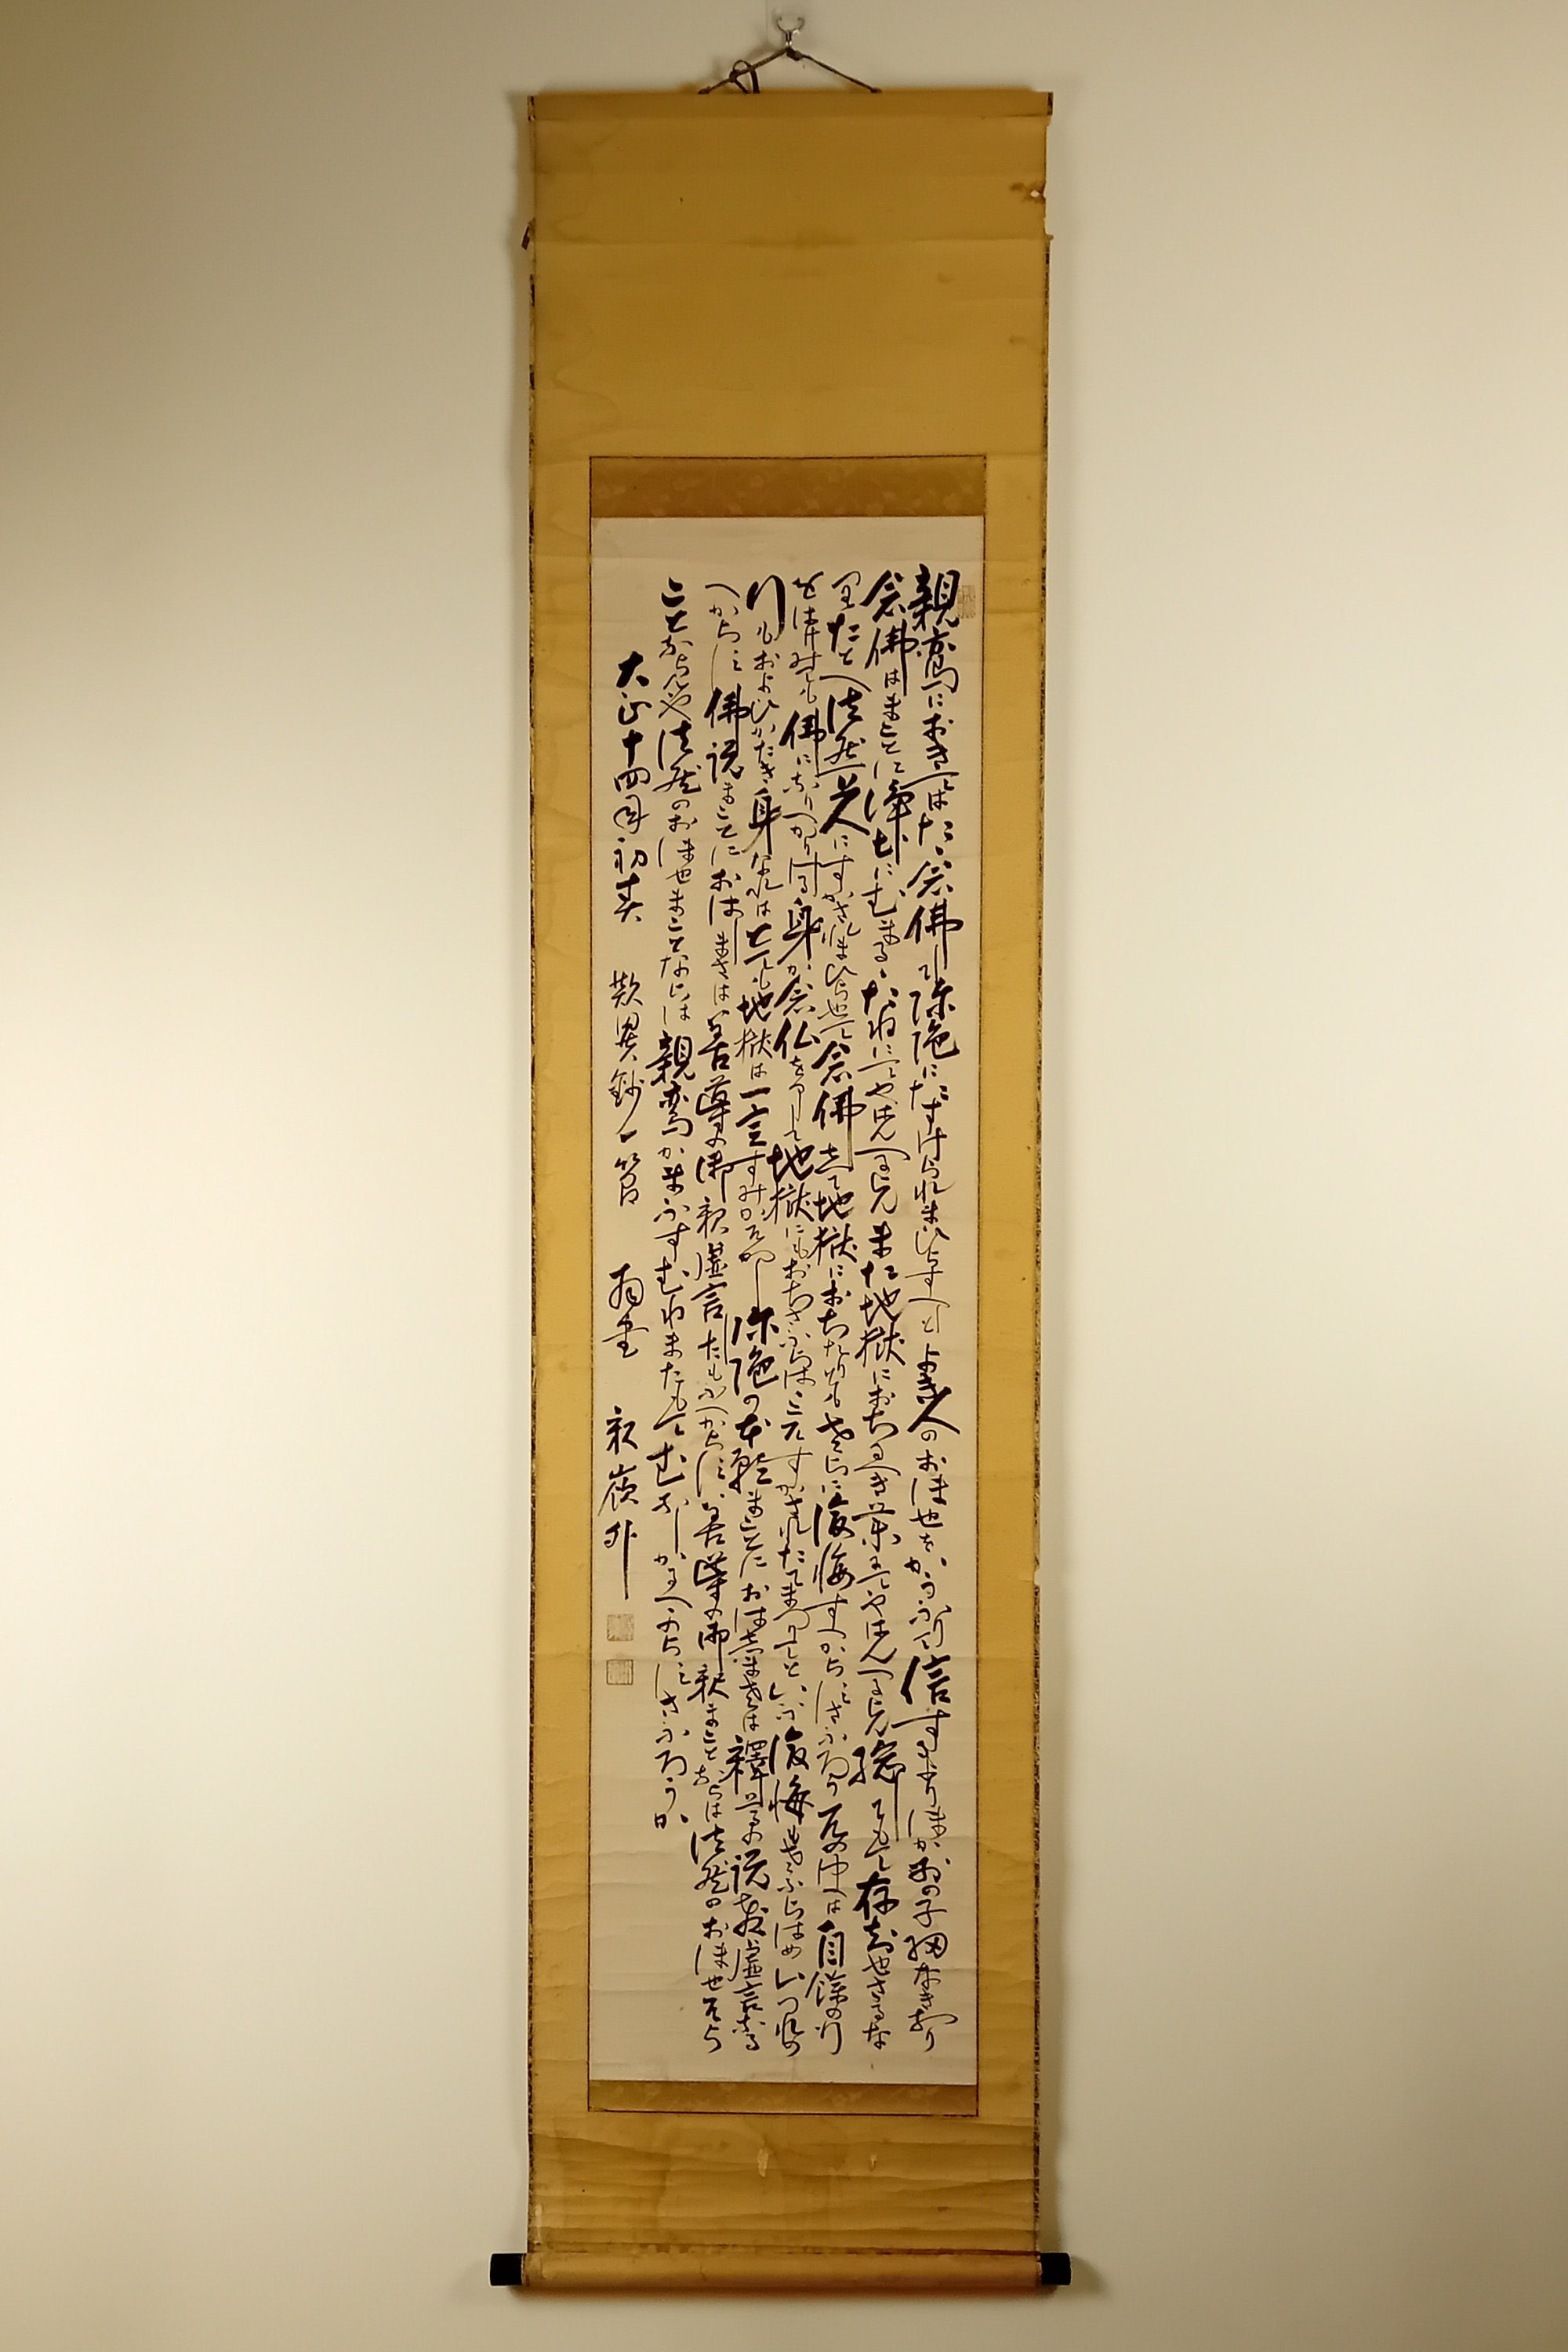 親鸞におきてはたゝ念佛して弥陀にたすけられまひらすへしとよき人のおほせをかうふりて信するよりほかおの子細なきなり
念佛はまことに浄土にむまるゝたねにてやはんへるらんまた地獄におちるへき業にてやはんへるらん総してもて存知せさるな
りたとへ法然上人にすかされまひらせて念佛して地獄におちたりともさらに後悔すへからすさふらふ その故は自餘の行
をはけみても佛になりへかりける身か念仏を申して地獄にもおちさふらはゝこそすかされたてまつりてといふ後悔もさふらはめいつれの
行もおよひかたき身なれはとても地獄は一定すみかそかし弥陀の本願まことにおはしまさは釋尊の説教虚言なる
へからす佛説まことにおはしまさは善導の御釈虚言したもふへからす善導の御釈まことならは法然のおほせそら
ことならんや法然のおほせまことならは親鸞かまふすむねまたもてむなしかるへからすさふろうか
大正十四年初春 歎異鈔一節 為書 釈嶺外